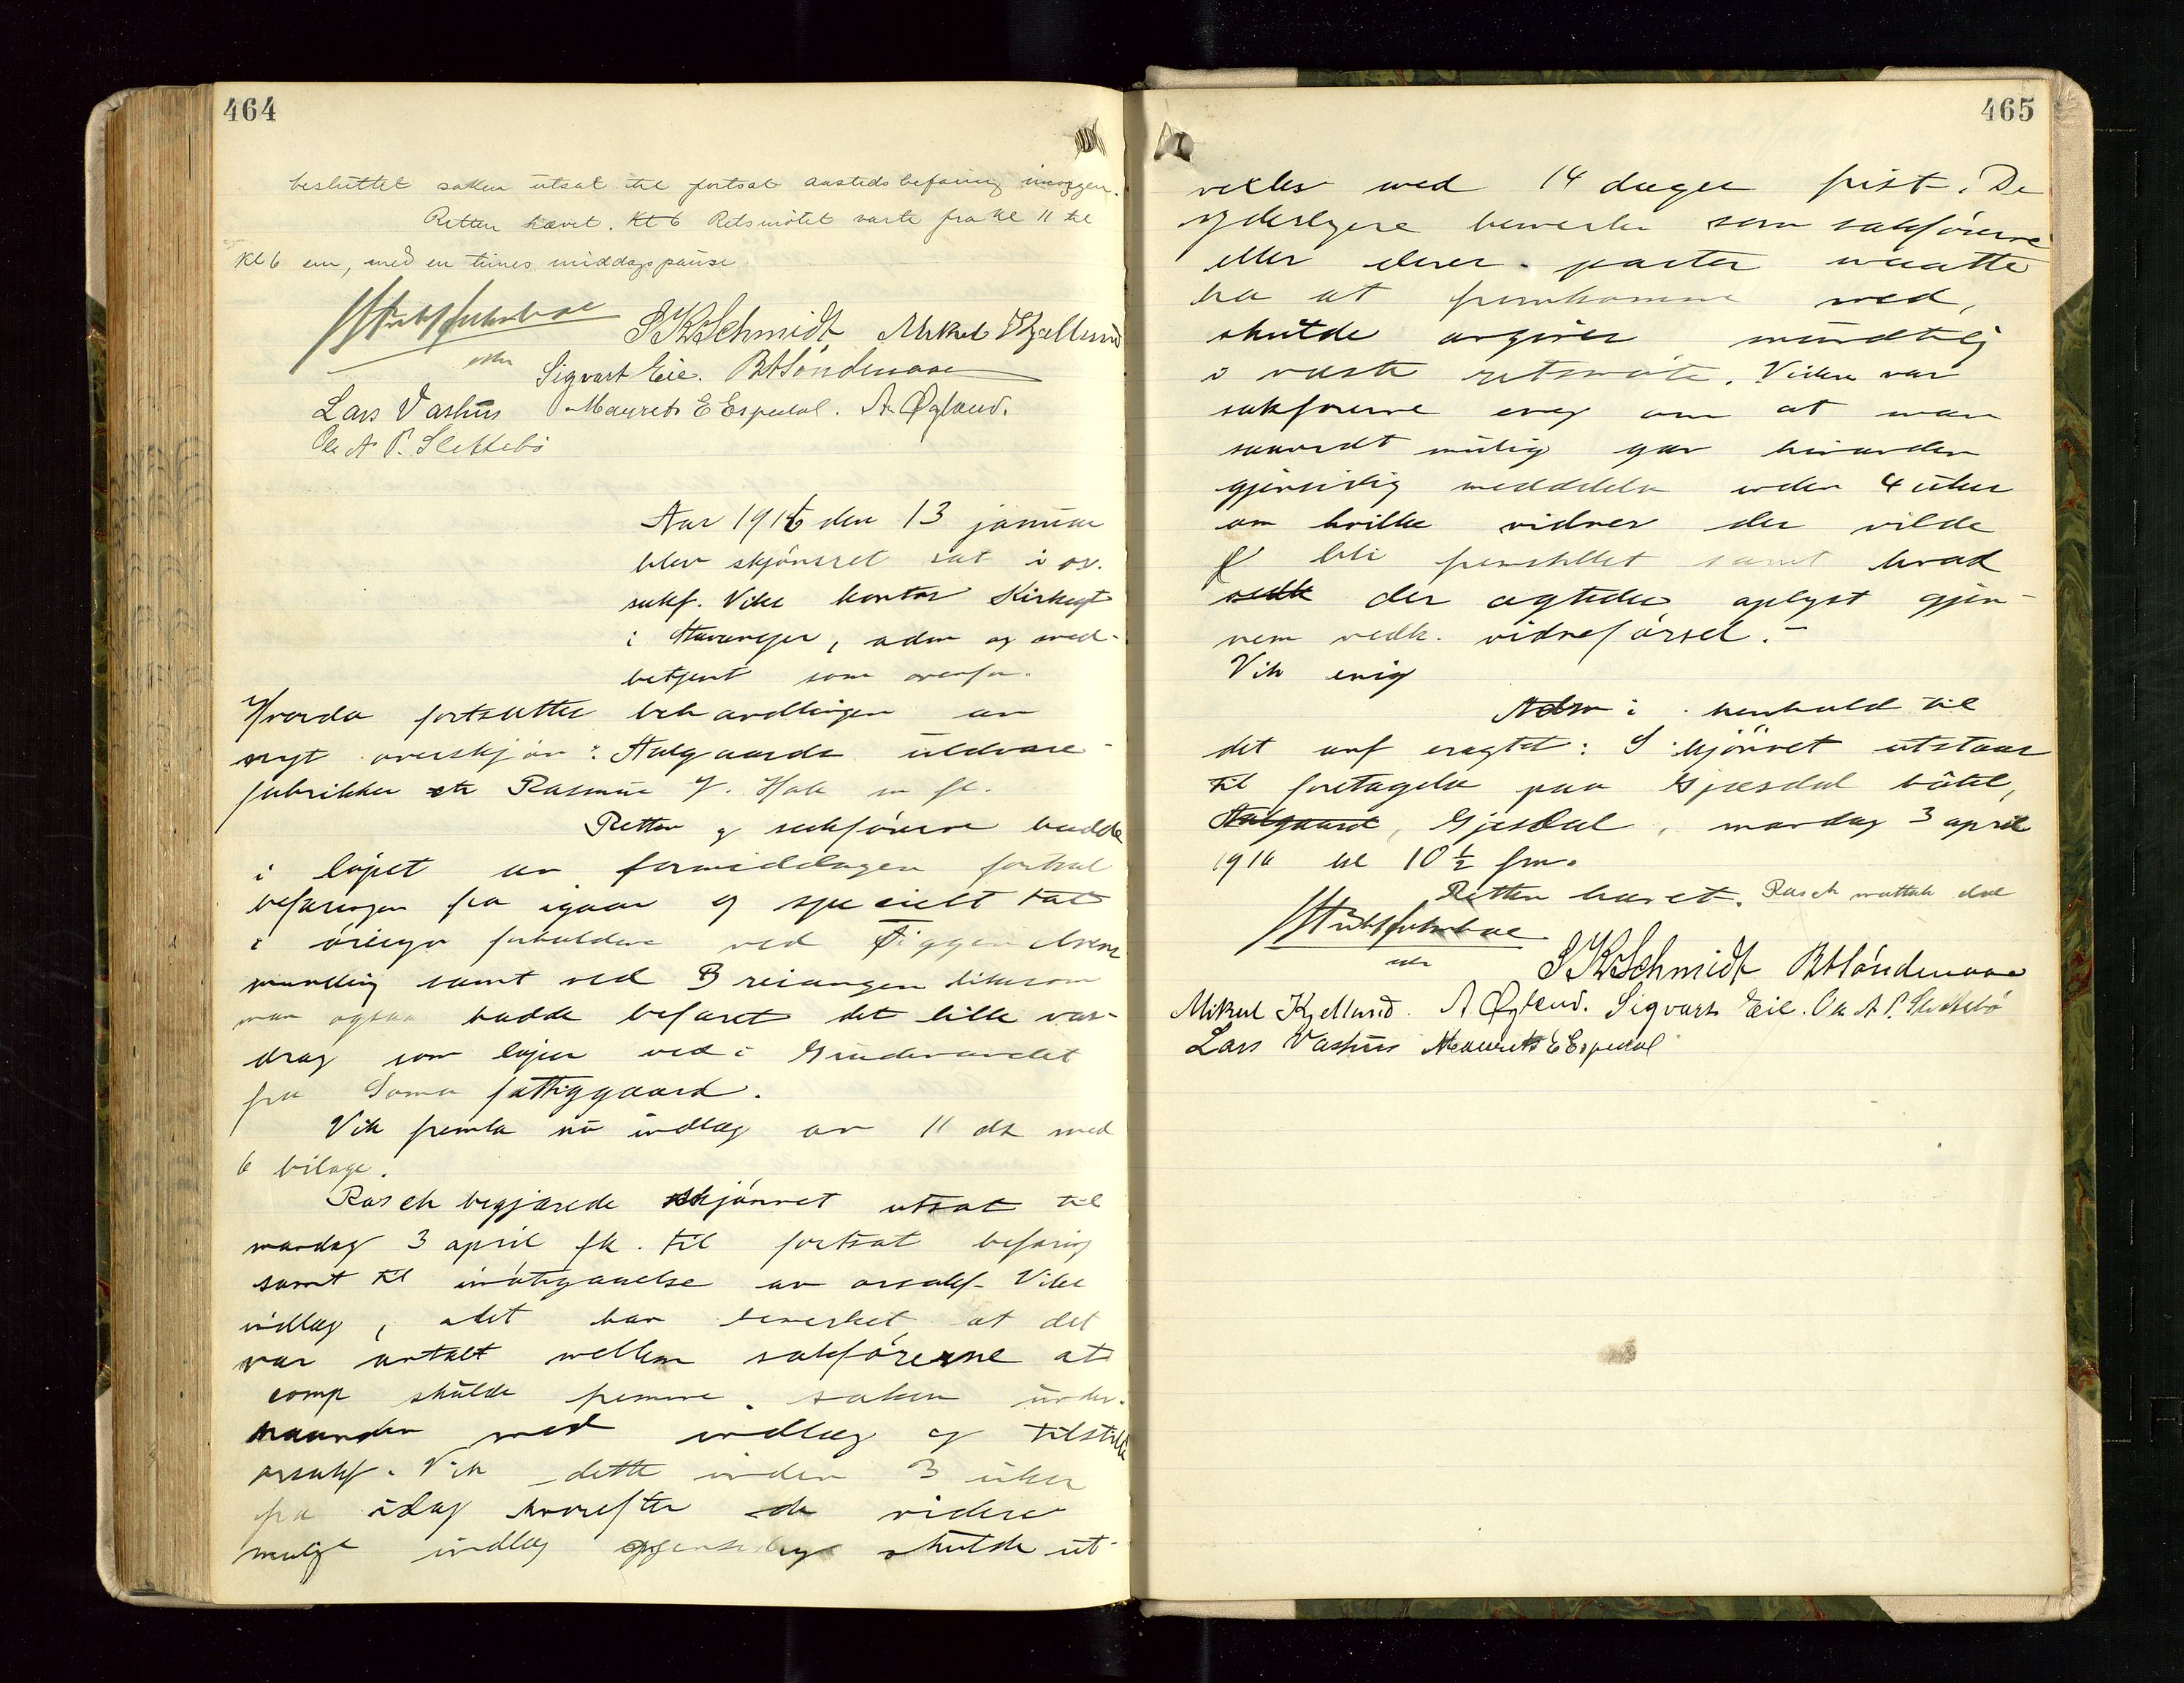 464
besluttet saken utsat til fortsat aastedsbefaring imorgen.
Retten hævet. Kl 6 Retsmötet varte fra kl 11 til
Kl 6 em, med en times middagspause.
S K Schmidt Mikal Kjelland
Sigvart Eie. B H Söndenaae
Lars Vashus Maurits E Espedal. A. Øgland.
Ole A P. Slettebö
Aar 1916 den 13 januar
blev skjönsret sat i os.
sakf. Viks kontor Kirkegt
i Stavanger, adm og med-
betjent som ovenfor.
Hvorda fortsattes behandlingen av
nyt overskjön: Aalgaards uldvare-
fabrikker etc Rasmus T. Hole m fl.
Retten og sakförerne hadde
i löpet av formiddagen fortsat
befaringen fra igaar og specielt tat
i öiesyn forholdene ved Figgen elvens
munding samt ved Breiangen likesom
man ogsaa hadde befaret det lille vas-
drag som löper ned i Grudevandet
fra Soma fattiggaard.
Vik fremla nu indlæg av 11 ds med
6 bilage.
Rasch begjærede skjönnet utsat til
mandag 3 april fk. til fortsat befaring
samt til imötegaaelse av orsakf. Viks
indlæg, idet han bemerket at det
var avtalt mellem sakförerne at
comp skulde fremme saken under-
haanden med indlæg og tilstille
orsakf. Vik dette inden 3 uker
fra idag hvorefter de videre
mulige indlæg gjensidige skulde ut-
465
veksles med 14 dages frist. De
yderligere bemerkn som sakförerne
eller deres parter maatte
ha at fremkomme med,
skulde avgives mundtlig
i næste retsmöte. Videre var
sakförerne enig om at man
saavidt mulig gav hinanden
gjensidig meddelelse inden 4 uker
om hvilke vidner der vilde
bli fremstillet samt hvad
der agtedes oplyst gjen-
nem vedk. vidneförsel.-
Vik enig
Adm i henhold til
det anf eragtet: Skjönnet utstaar
til foretagelse paa Gjesdal hotel,
Aalgaard, Gjesdal, mandag 3 april
1916 kl 10 1/2 fm.
Retten hævet. Rasch mottok del
S K Schmidt B H Söndenaae
Mikal Kjelland. A Øgland. Sigvart Eie. Ole A P. Slettebö
Lars Vashus Maurits E Espedal